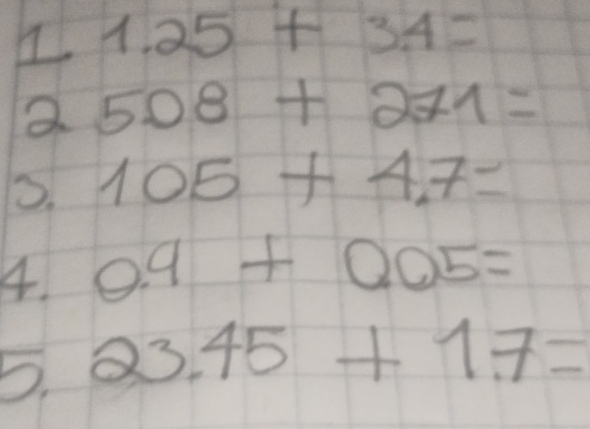 1. 1.25 + 3.4=
2. 5.08 + 2.71=
3. 105 + 4.7=
4. 0.9 + 0.05=
5. 23.45 + 1.7=